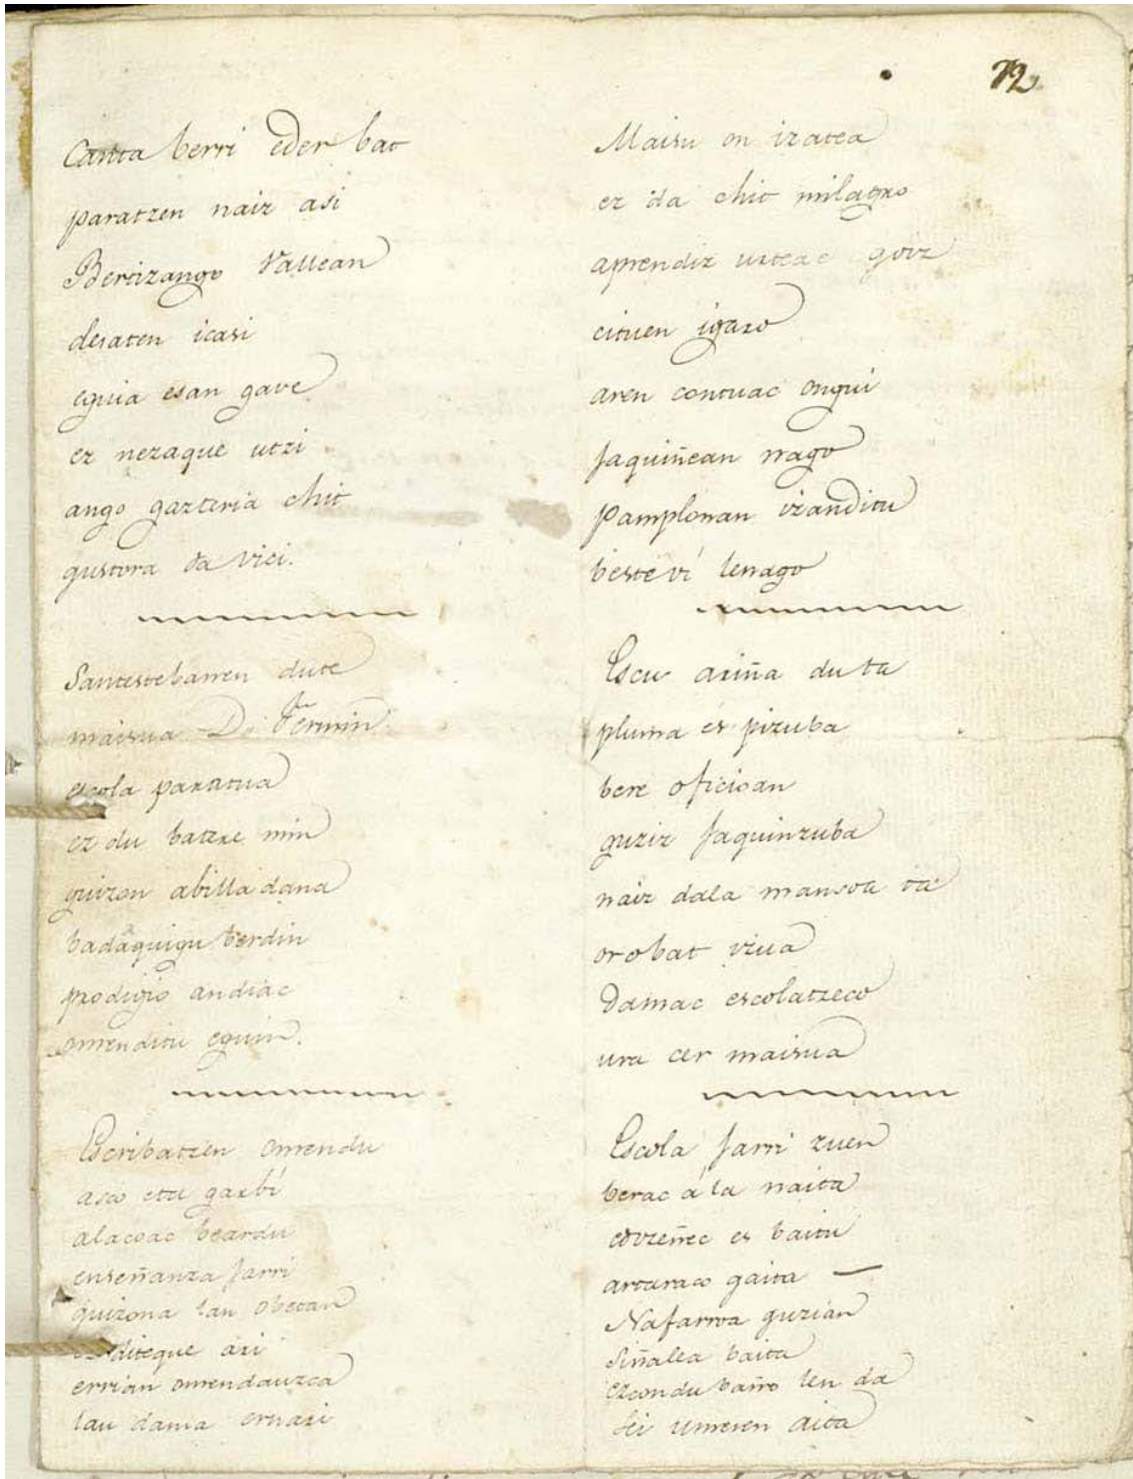 72
Canta berri eder bat
paratzen naiz asi
Bertizango Vallean
desaten icasi
eguia esan gave
ez nezaque utzi
ango gazteria chit
gustora da vici.
Santestebanen dute
maisua Dn. Fermin
escola paratua
ez du batere min
guizon abilla dana
badaquigu berdin
prodigio andiac
omenditu eguin.
Escribatzen omendu
asco eta garbi
alacoac beardu
enseñanza jarri
guizona lan obetan
diteque ari
errian omendauzca
lau dama ernari
Maisu on izatea
ez da chit milagro
aprendiz urteac goiz
cituen igaro
aren contuac ongui
jaquiñean nago
Pamplonan izanditu
beste vi lenago
Escu ariña du ta
pluma es pizuba
bere oficioan
guziz jaquinzuba
naiz dala mansoa ta
orobat viua
Damac escolatzeco
ura cer maisua
Escola jarri zuen
berac á la naita
es baitu
artaraco gaita
Nafarroa guzian
Siñalea baita
ezcondu baño len da
sei umeren aita